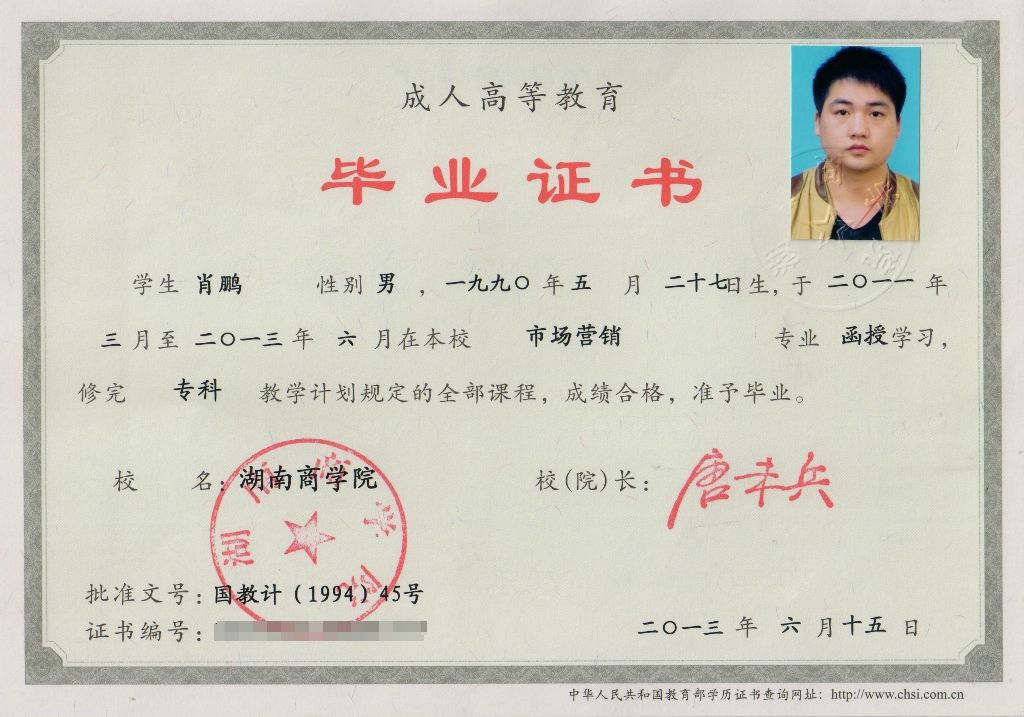 成人高等教育
毕业证书
学生 肖鹏 性别 男 ，一九九〇年五 月 二十七日生，于 二〇一一 年
三 月至 二〇一三 年 六 月在本校 市场营销 专业 函授学习，
修完 专科 教学计划规定的全部课程，成绩合格，准予毕业。
校 名：湖南商学院 校(院)长：唐未兵
湖南商学院
批准文号：国教计（1994）45号
证书编号：
二〇一三 年 六 月十五 日
中华人民共和国教育部学历证书查询网址：http://www.chsi.com.cn